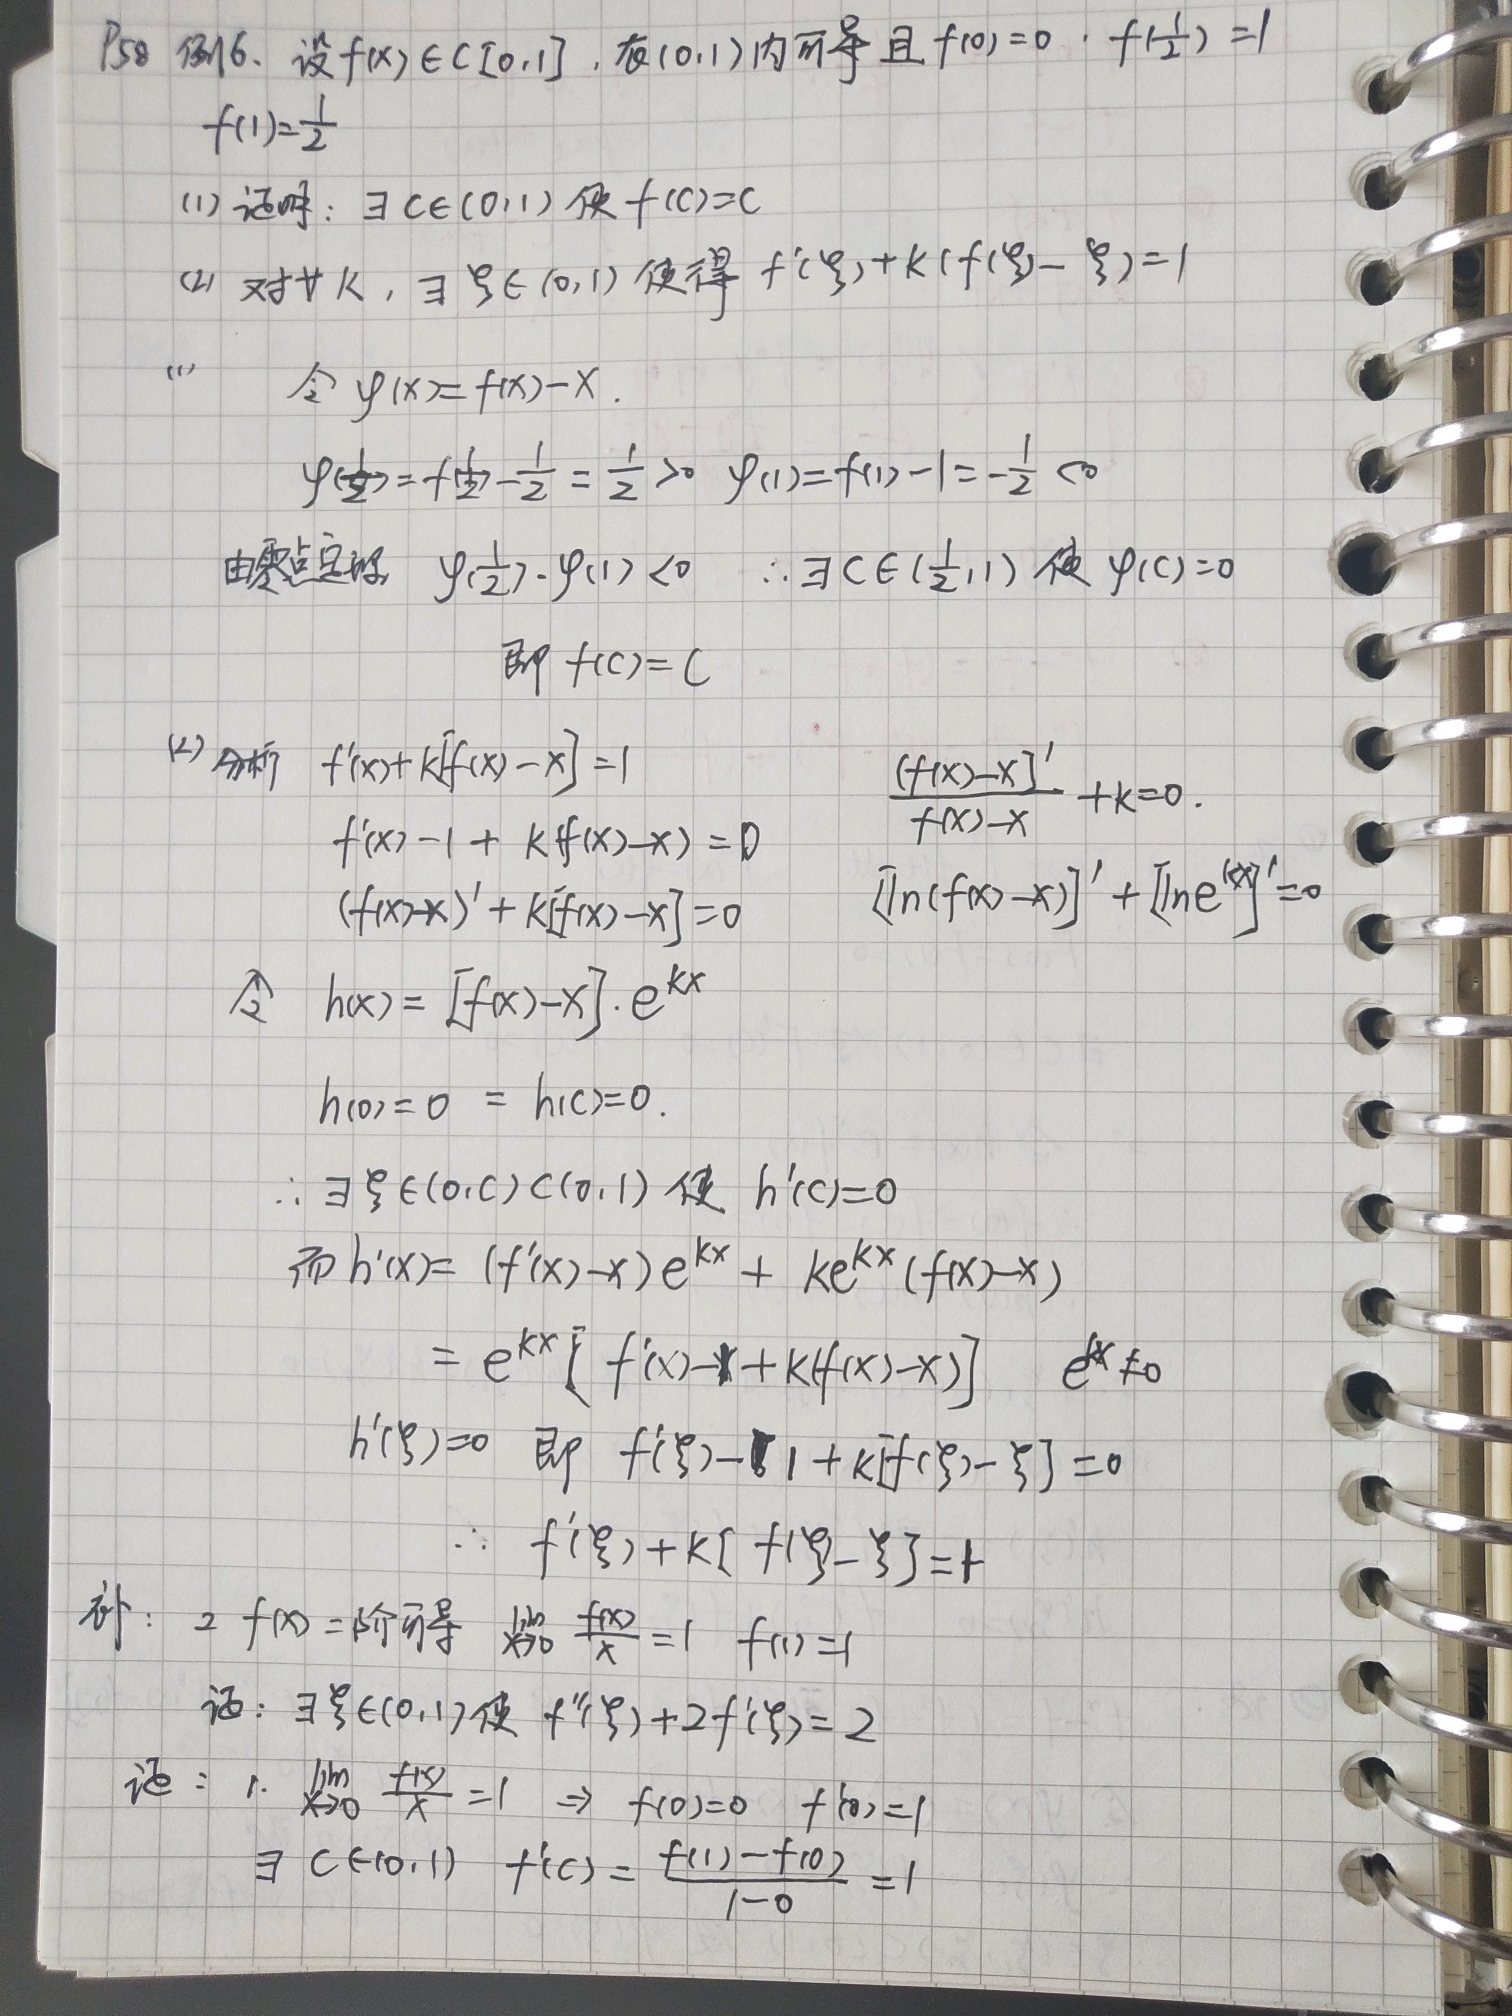 P58 例16. 设f(x)∈C[0,1],在(0,1)内可导且f(0)=0,f(1/2)=1
f(1)=1/2
(1) 证明:∃C∈(0,1)使f(C)=C
(2) 对∀K,∃ξ∈(0,1)使得 f'(ξ)+K(f(ξ)-ξ)=1
(1) 令φ(x)=f(x)-x.
φ(1/2)=f(1/2)-1/2=1/2>0 φ(1)=f(1)-1=-1/2<0
由零点定理 φ(1/2)·φ(1)<0 ∴∃C∈(1/2,1)使φ(C)=0
即f(C)=C
(2)分析 f'(x)+K[f(x)-x]=1
f'(x)-1+K(f(x)-x)=0
(f(x)-x)'+K[f(x)-x]=0
(f(x)-x]'/f(x)-x +K=0.
[ln(f(x)-x)]'+[lne^kx]'=0
令 h(x)=[f(x)-x]·e^kx
h(0)=0 = h(C)=0.
∴∃ξ∈(0,C)⊂(0,1)使 h'(C)=0
而h'(x)=(f'(x)-x)e^kx+ke^kx(f(x)-x)
=e^kx[f'(x)-1+K(f(x)-x)] e^kx≠0
h'(ξ)=0 即 f'(ξ)-1+K[f(ξ)-ξ]=0
∴ f'(ξ)+K[f(ξ)-ξ]=1
补: 2 f(x)二阶可导 lim x→0 f(x)/x=1 f(1)=1
证:∃ξ∈(0,1)使f''(ξ)+2f'(ξ)=2
证: 1. lim x→0 f(x)/x=1 ⇒ f(0)=0 f'(0)=1
∃C∈(0,1) f'(C)=f(1)-f(0)/1-0=1